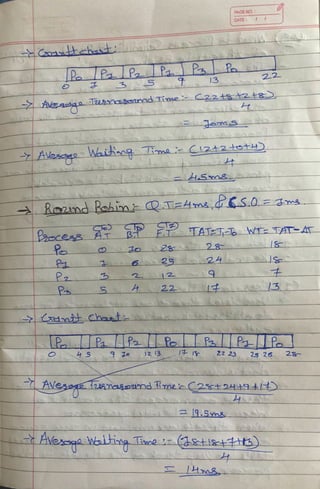 PAGE NO.:
DATE: / /
→ Grantt chart:
P0 P1 P2 P1 P3 P0
0 1 3 5 9 13 22
→ Average Turnaround Time:- (22+8+2+8)
4
= 10ms
→ Average Waiting Time :- (12+2+0+4)
4
= 4.5ms.
→ Round Robin:- Q.T=4ms, & C.S.O = 1ms.
Process A.T B.T F.T TAT= WT= TAT-
P0 0 10 28 28 18
P1 1 6 25 24 18
P2 3 2 12 9 7
P3 5 4 22 17 13
→ Grantt Chart:-
P0 P1 P2 P0 P3 P1 P0
0 4 5 9 10 12 13 17 18 22 23 25 26 28
→ Average Turnaround Time:- (28+24+9+17)
4
= 19.5ms
→ Average Waiting Time :- (18+18+7+13)
4
= 14ms.